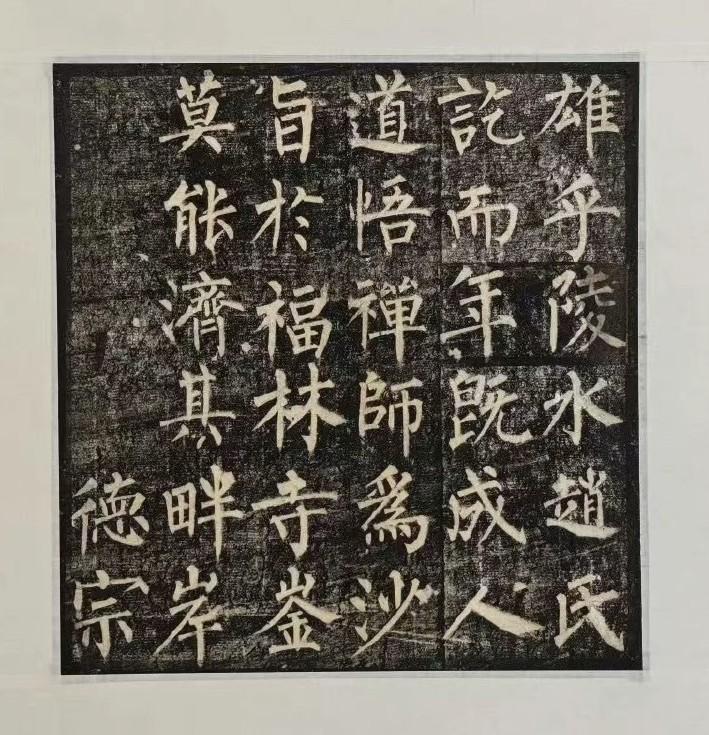 雄乎陵水趙氏
訖而年既成人
道悟禪師爲沙
旨於福林寺崟
莫能濟其畔岸
徳宗